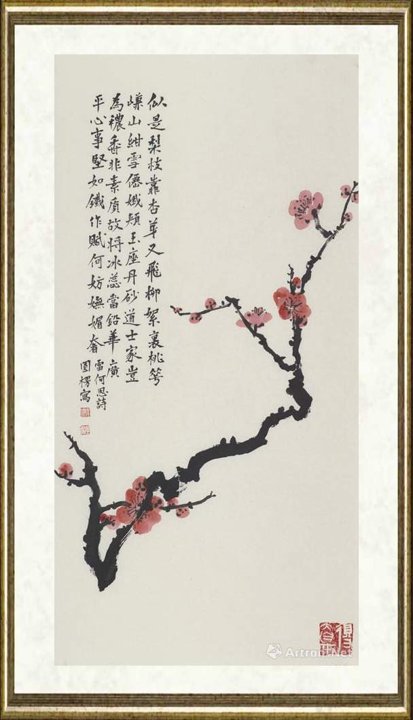 似是梨枝叢杏華又飛柳絮裏桃
嵊山紺雪僊娥頰玉座丹砂道士家豈
為穠香非素質故將冰蕊當鉛華廣
平心事堅如鐵作賦何妨嫵媚奢
雷何思詩
圓樗寫
Artron.Net